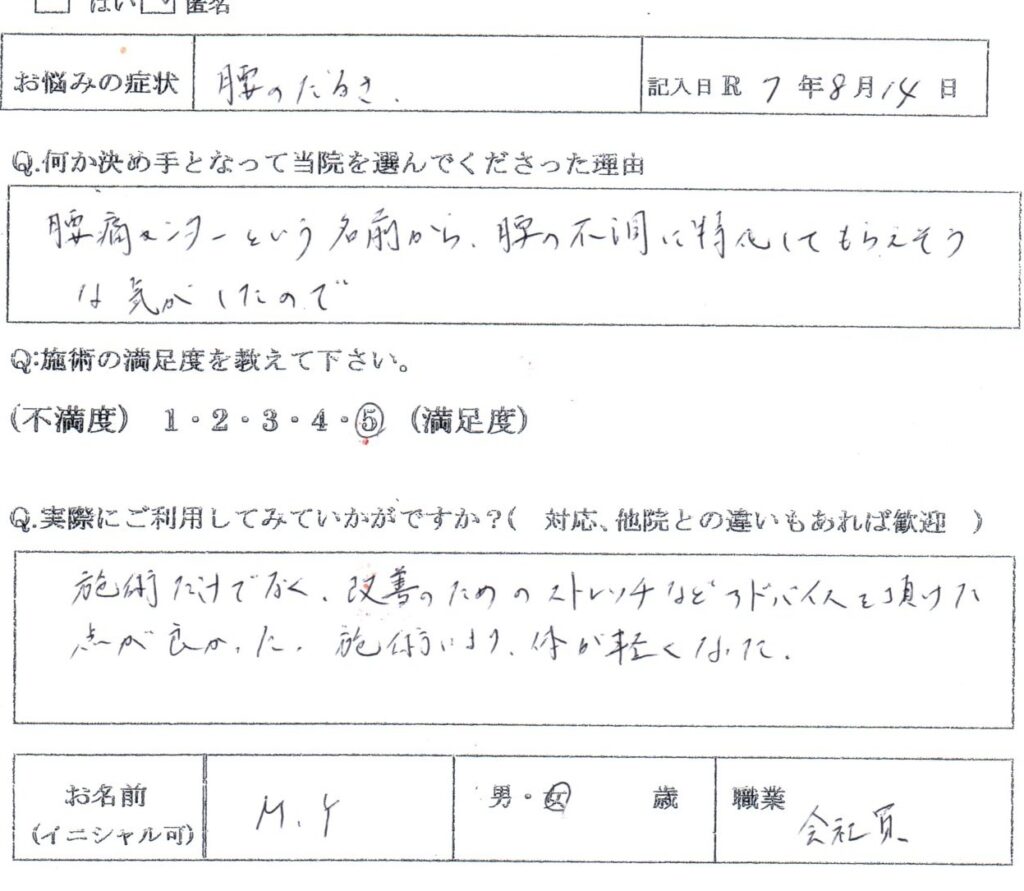 はい 匿名
お悩みの症状 腰のだるさ. 記入日 R 7 年 8 月 14 日
Q.何か決め手となって当院を選んでくださった理由
腰痛センターという名前から、腰の不調に特化してもらえそう
な気がしたので
Q:施術の満足度を教えて下さい。
(不満度) 1・2・3・4・5 (満足度)
Q.実際にご利用してみていかがですか?( 対応、他院との違いもあれば歓迎 )
施術だけでなく、改善のためのストレッチなどアドバイスを頂けた
点が良かった。施術により、体が軽くなった.
お名前 M.Y 男・女 歳 職業
(イニシャル可) 会社員